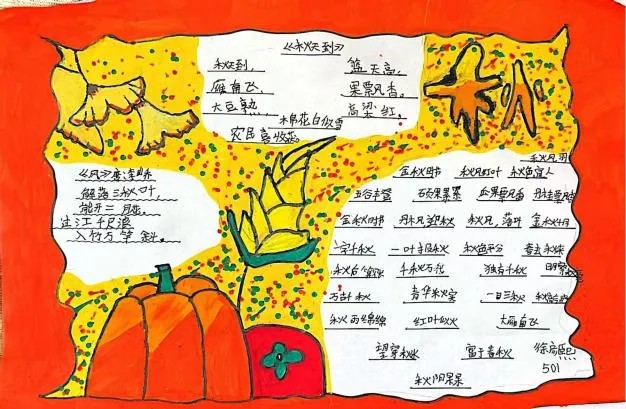 《秋天到》
秋天到， 蓝天高，
雁南飞， 果飘香。
大豆熟， 高粱红，
棉花白似雪
农民喜收获。
秋
《风》唐 李峤
解落三秋叶，
能开二月花。
过江千尺浪
入竹万竿斜。
秋风习
金秋时节 秋风红叶 秋色宜人
五谷丰登 硕果累累 瓜果飘香 丹桂飘香
金秋时节 丹枫迎秋 秋风，落叶 金秋十月
一字千秋 一叶知秋 秋色平分 春去秋来
千秋万代 独有千秋
万古千秋 春华秋实 一日三秋
秋雨绵绵 红叶似火 大雁南飞
望穿秋水 富于春秋
501
秋阳杲杲